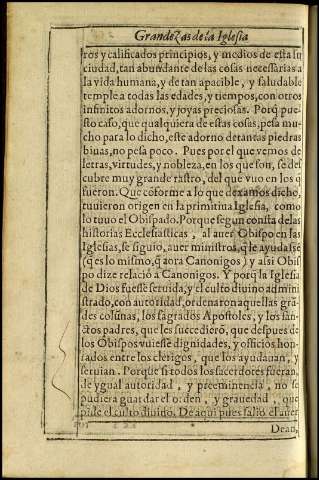 Grandezas de la Iglesia
ros y calificados principios, y medios de esta su
ciudad, tan abundante de las cosas necessarias a
la vida humana, y de tan apacible, y saludable
temple a todas las edades, y tiempos, con otros
infinitos adornos, y joyas preciosas. Porq̃ pue-
sto caso, que qualquiera de estas cosas, pesa mu-
cho para lo dicho, este adorno de tantas piedras
biuas, no pesa poco. Pues por el que vemos de
letras, virtudes, y nobleza, en los que son, se des
cubre muy grande rastro, del que vuo en los q̃
fueron. Que cõforme a lo que dexamos dicho,
tuuieron origen en la primitiua Iglesia, como
lo tuuo el Obispado. Porque segun consta de las
historias Ecclesiasticas, al auer Obispo en las
Iglesias, se siguio, auer ministros, q̃ le ayudassẽ
(q̃ es lo mismo, q̃ aora Canonigos) y assi Obis
po dize relaciõ a Canonigos. Y porq̃ la Iglesia
de Dios fuesse seruida, y el culto diuino admini
strado, con autoridad, ordenaron aquellas grã
des colũnas, los sagrados Apostoles, y los san-
ctos padres, que les succedierõ, que despues de
los Obispos vuiesse dignidades, y officios hon-
rados entre los clerigos, que los ayudauan, y
seruian. Porque si todos los sacerdotes fueran,
de ygual autoridad, y preeminencia, no se
pudiera guardar el orden, y grauedad, que
pide el culto diuino. De aqui pues salio el auer
Dean,